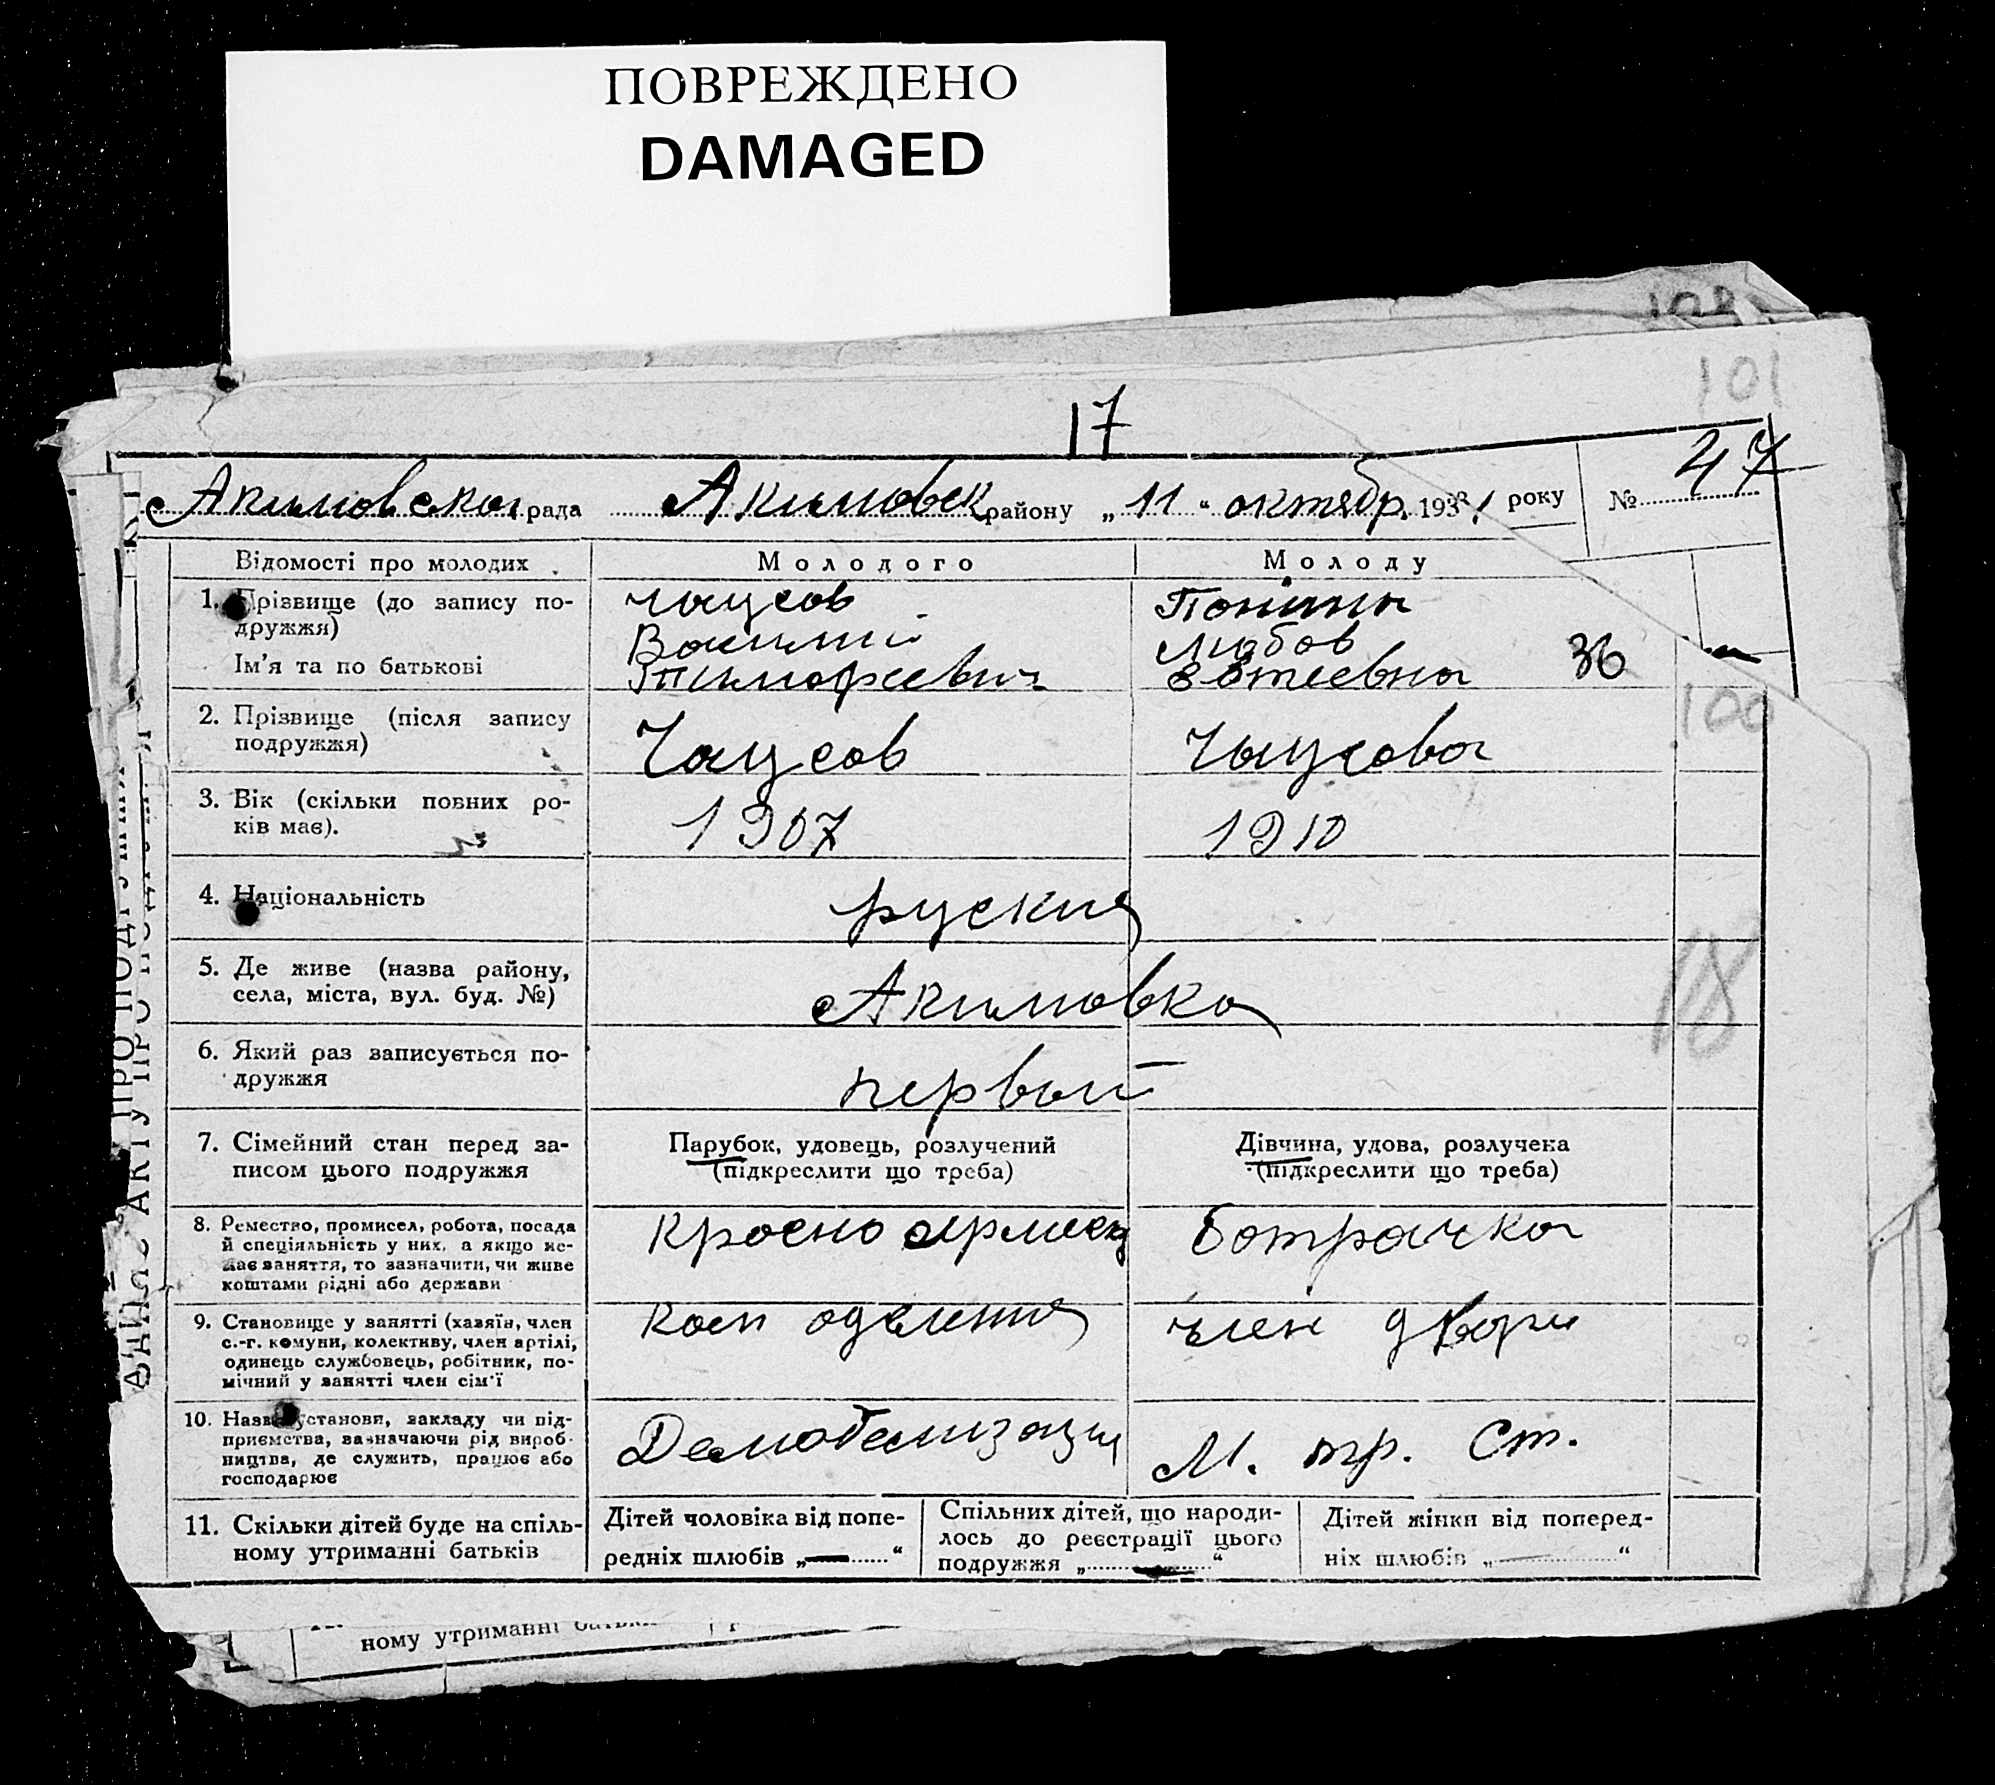 ПОВРЕЖДЕНО
DAMAGED
101
17
Акимовская рада Акимовск району „11“ октябр. 1931 року № 47
Відомості про молодих
Молодого
Молоду
1. Прізвище (до запису по-
дружжя)
Ім'я та по батькові
Чаусов
Василий
Тимофеевич
Любов
36
2. Прізвище (після запису
подружжя)
Чаусов
Чаусова
100
3. Вік (скільки повних ро-
ків має).
1907
1910
4. Національність
руския
5. Де живе (назва району,
села, міста, вул. буд. №)
Акимовка
18
6. Який раз записується по-
дружжя
первый
7. Сімейний стан перед за-
писом цього подружжя
Парубок, удовець, розлучений
(підкреслити що треба)
Дівчина, удова, розлучена
(підкреслити що треба)
8. Ремество, промисел, робота, посада
й спеціяльність у них, а якщо не-
має заняття, то зазначити, чи живе
коштами рідні або держави
Красно армеец
Батрачка
9. Становище у занятті (хазяїн, член
с.-г. комуни, колективу, член артілі,
одинець службовець, робітник, по-
мічний у занятті член сім'ї
член двора
10. Назва установи, закладу чи під-
приємства, зазначаючи рід вироб-
ництва, де служить, працює або
господарює
М. тр. Ст.
11. Скільки дітей буде на спіль-
ному утриманні батьків
Дітей чоловіка від попе-
редніх шлюбів „—“
Спільних дітей, що народи-
лось до реєстрації цього
подружжя „—“
Дітей жінки від поперед-
ніх шлюбів „—“
ному утриманні